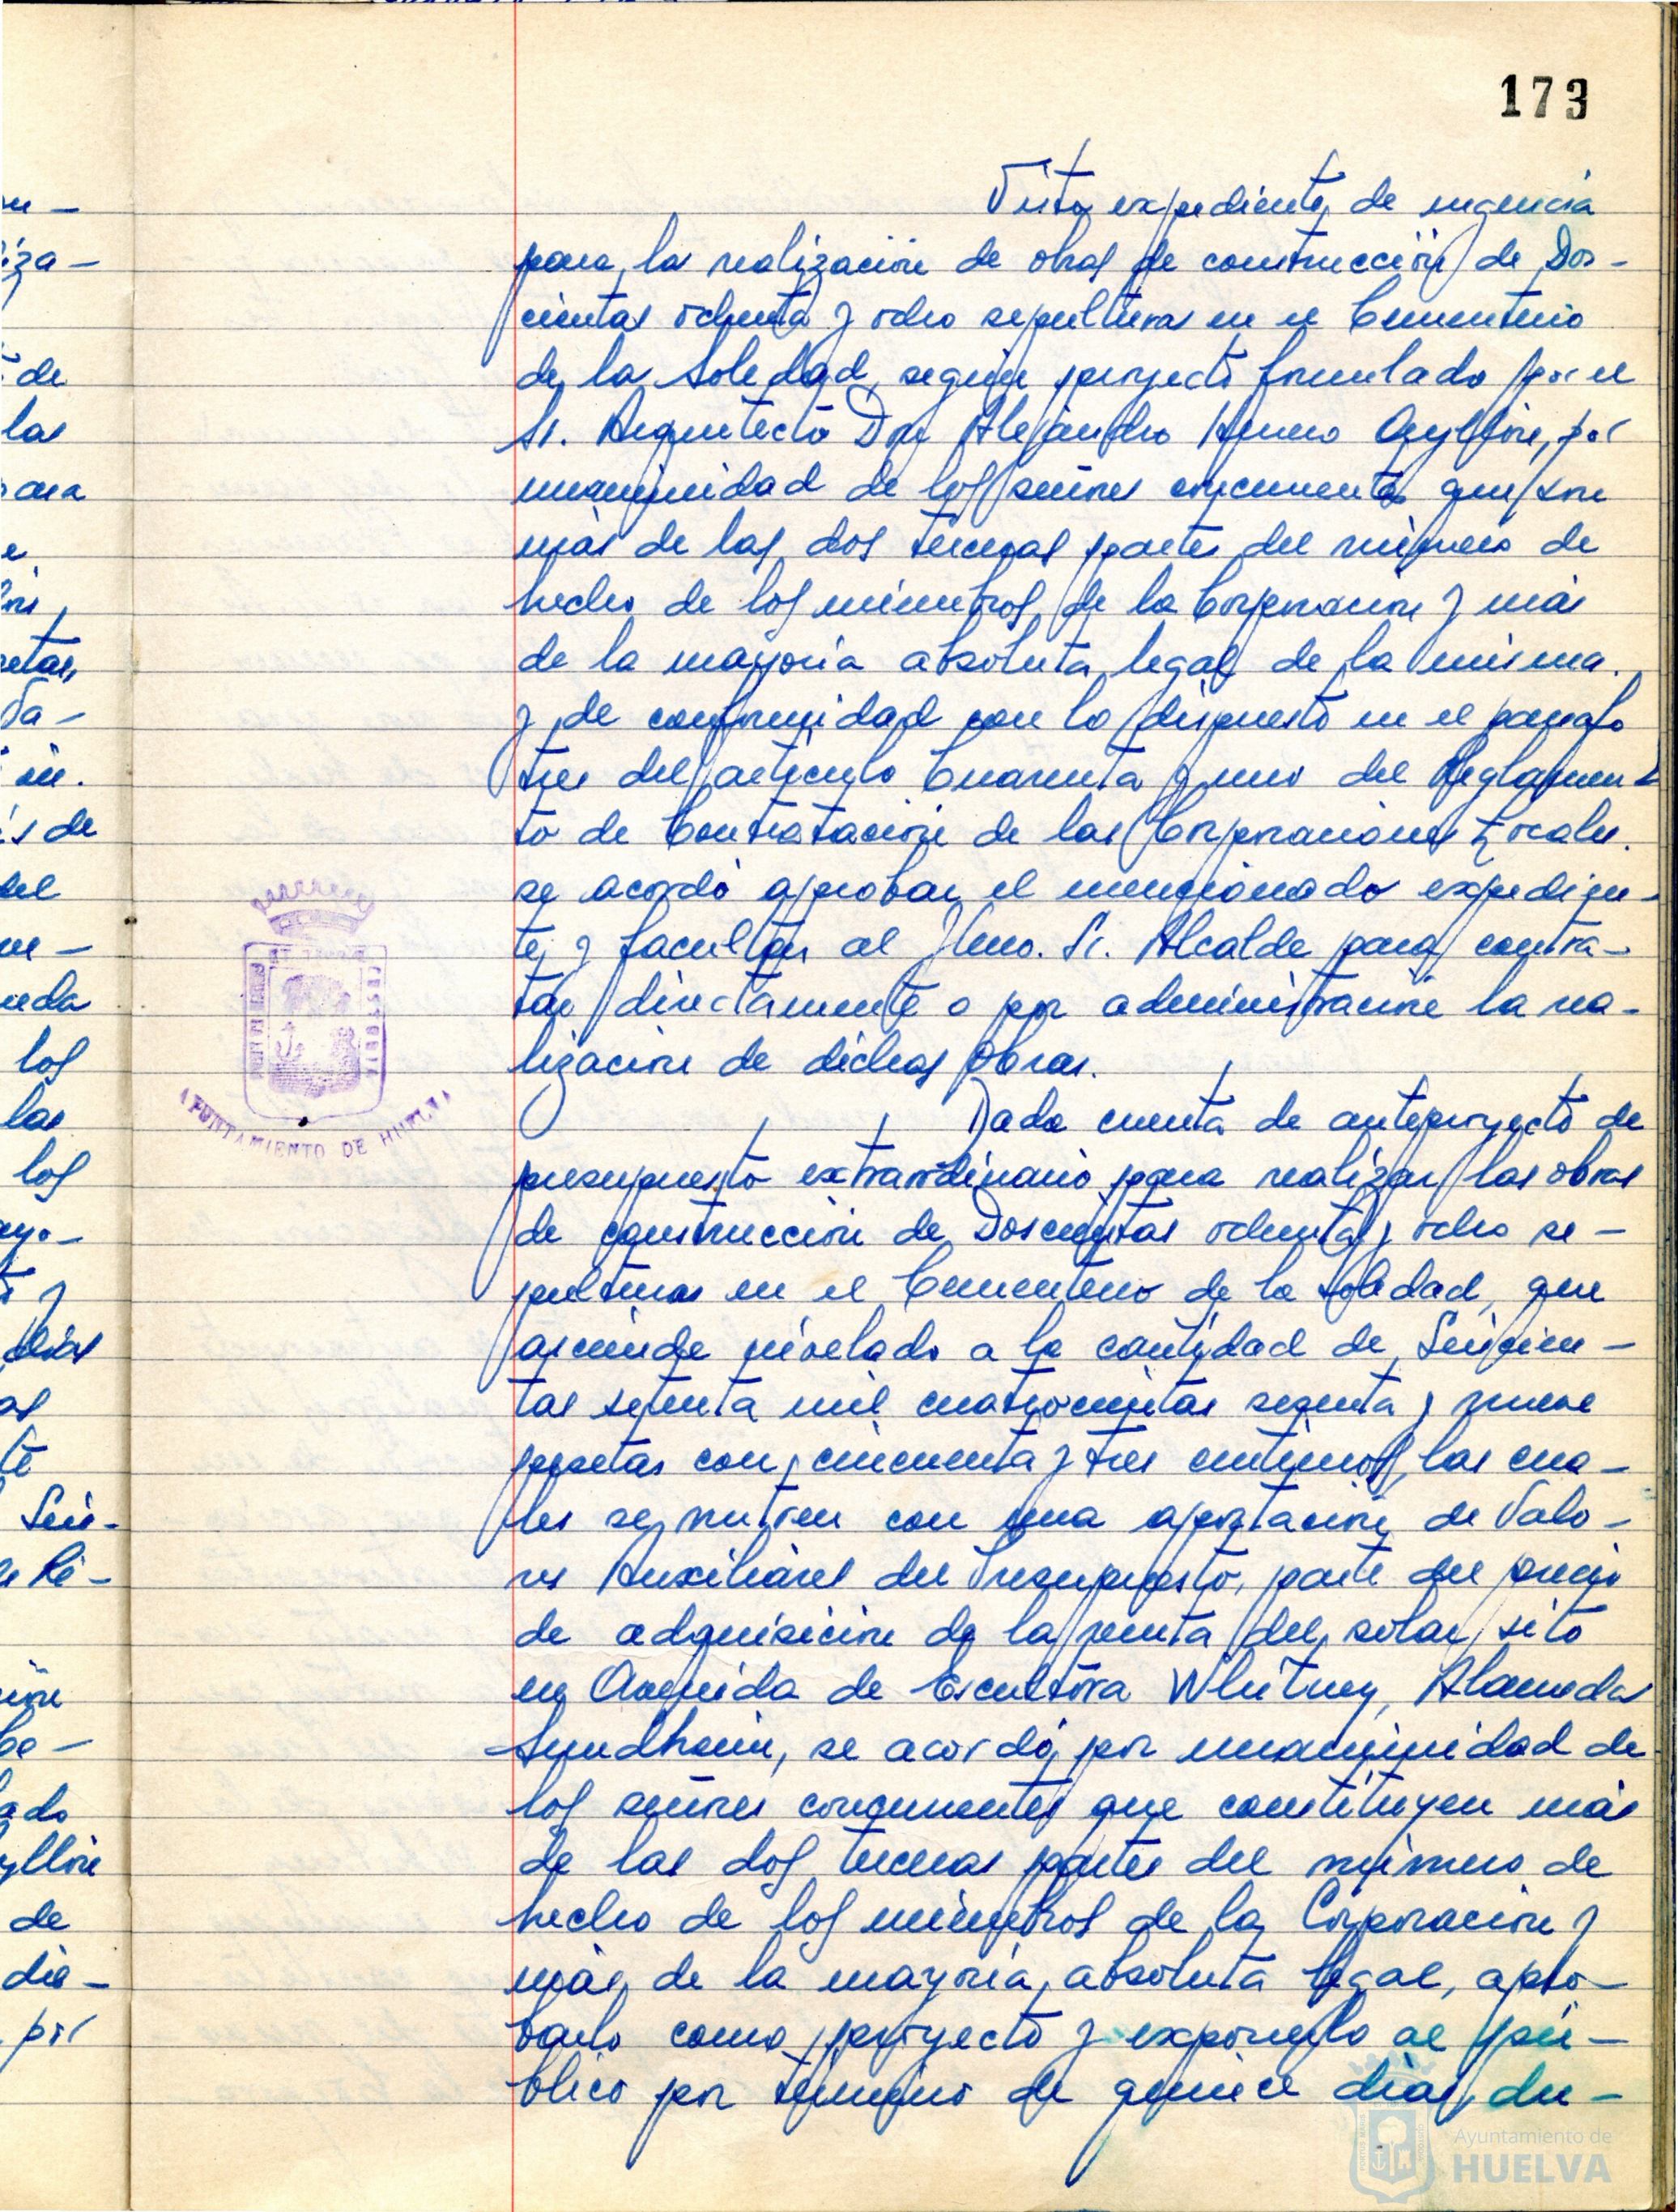 173
Visto expediente de urgencia
para la realización de obras de construcción de Dos-
cientas ochenta y ocho sepulturas en el Cementerio
de la Soledad, según proyecto formulado por el
Sr. Arquitecto Don Alejandro Herrero Ayllón, por
unanimidad de los señores concurrentes que son
más de las dos terceras partes del número de
hecho de los miembros de la Corporación y más
de la mayoría absoluta legal de la misma.
y de conformidad con lo dispuesto en el párrafo
tres del artículo Cuarenta y uno del Reglamen-
to de Contratación de las Corporaciones Locales.
se acordó aprobar el mencionado expedien-
te y facultar al Iltmo. Sr. Alcalde para contra-
tar directamente o por administración la rea-
lización de dichas obras.
Dada cuenta de anteproyecto de
presupuesto extraordinario para realizar las obras
de construcción de Doscientas ochenta y ocho se-
pulturas en el Cementerio de la Soledad, que
asciende nivelado a la cantidad de Seiscien-
tas setenta mil cuatrocientas sesenta y nueve
pesetas con cincuenta y tres centimos, las cua-
les se nutren con una aportación de Valo-
res Auxiliares del Presupuesto, parte del precio
de adquisición de la venta del solar sito
en Avenida de Escultora Whitney, Alameda
Sundheim, se acordó por unanimidad de
los señores concurrentes que constituyen más
de las dos terceras partes del número de
hecho de los miembros de la Corporación y
más de la mayoría absoluta legal, apro-
barlo como proyecto y exponerlo al pú-
blico por término de quince días, du-
AYUNTAMIENTO DE HUELVA
Ayuntamiento de
HUELVA